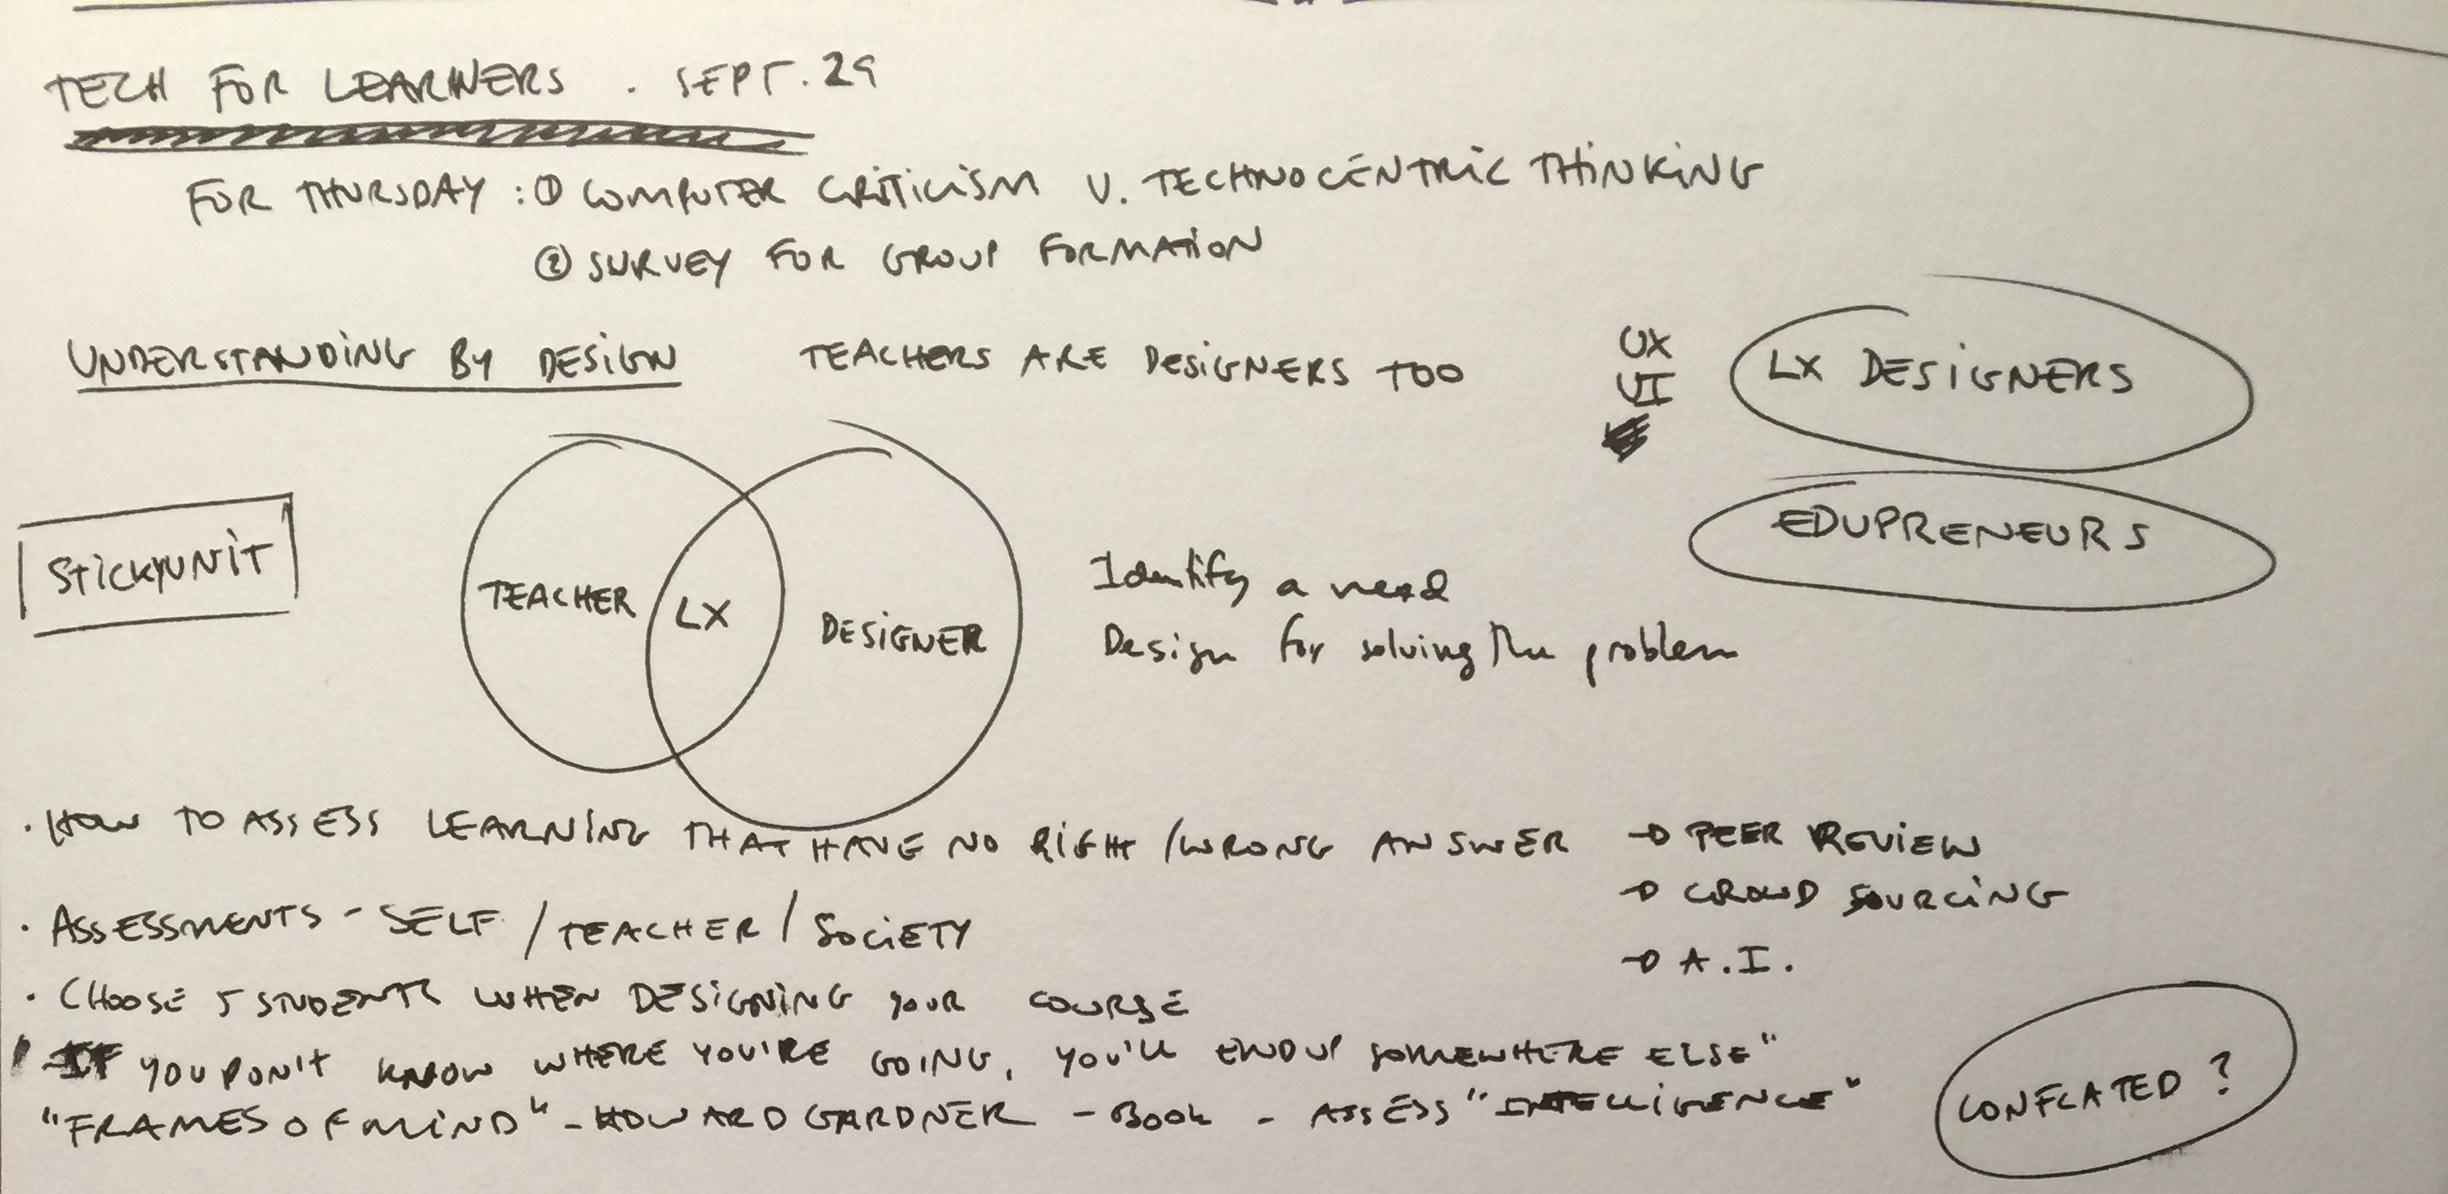 TECH FOR LEARNERS . SEPT. 29
FOR THURSDAY : ① COMPUTER CRITICISM V. TECHNOCENTRIC THINKING
② SURVEY FOR GROUP FORMATION
UNDERSTANDING BY DESIGN TEACHERS ARE DESIGNERS TOO
UX
UI
LX DESIGNERS
EDUPRENEURS
STICKYUNIT
TEACHER LX DESIGNER
Identify a need
Design for solving the problem
· HOW TO ASSESS LEARNING THAT HAVE NO RIGHT/WRONG ANSWER → PEER REVIEW
→ CROWD SOURCING
→ A.I.
· ASSESSMENTS - SELF / TEACHER / SOCIETY
· CHOOSE 5 STUDENTS WHEN DESIGNING YOUR COURSE
IF YOU DON'T KNOW WHERE YOU'RE GOING, YOU'LL END UP SOMEWHERE ELSE"
"FRAMES OF MIND" - HOWARD GARDNER - BOOK - ASSESS "INTELLIGENCE"
CONFLATED ?